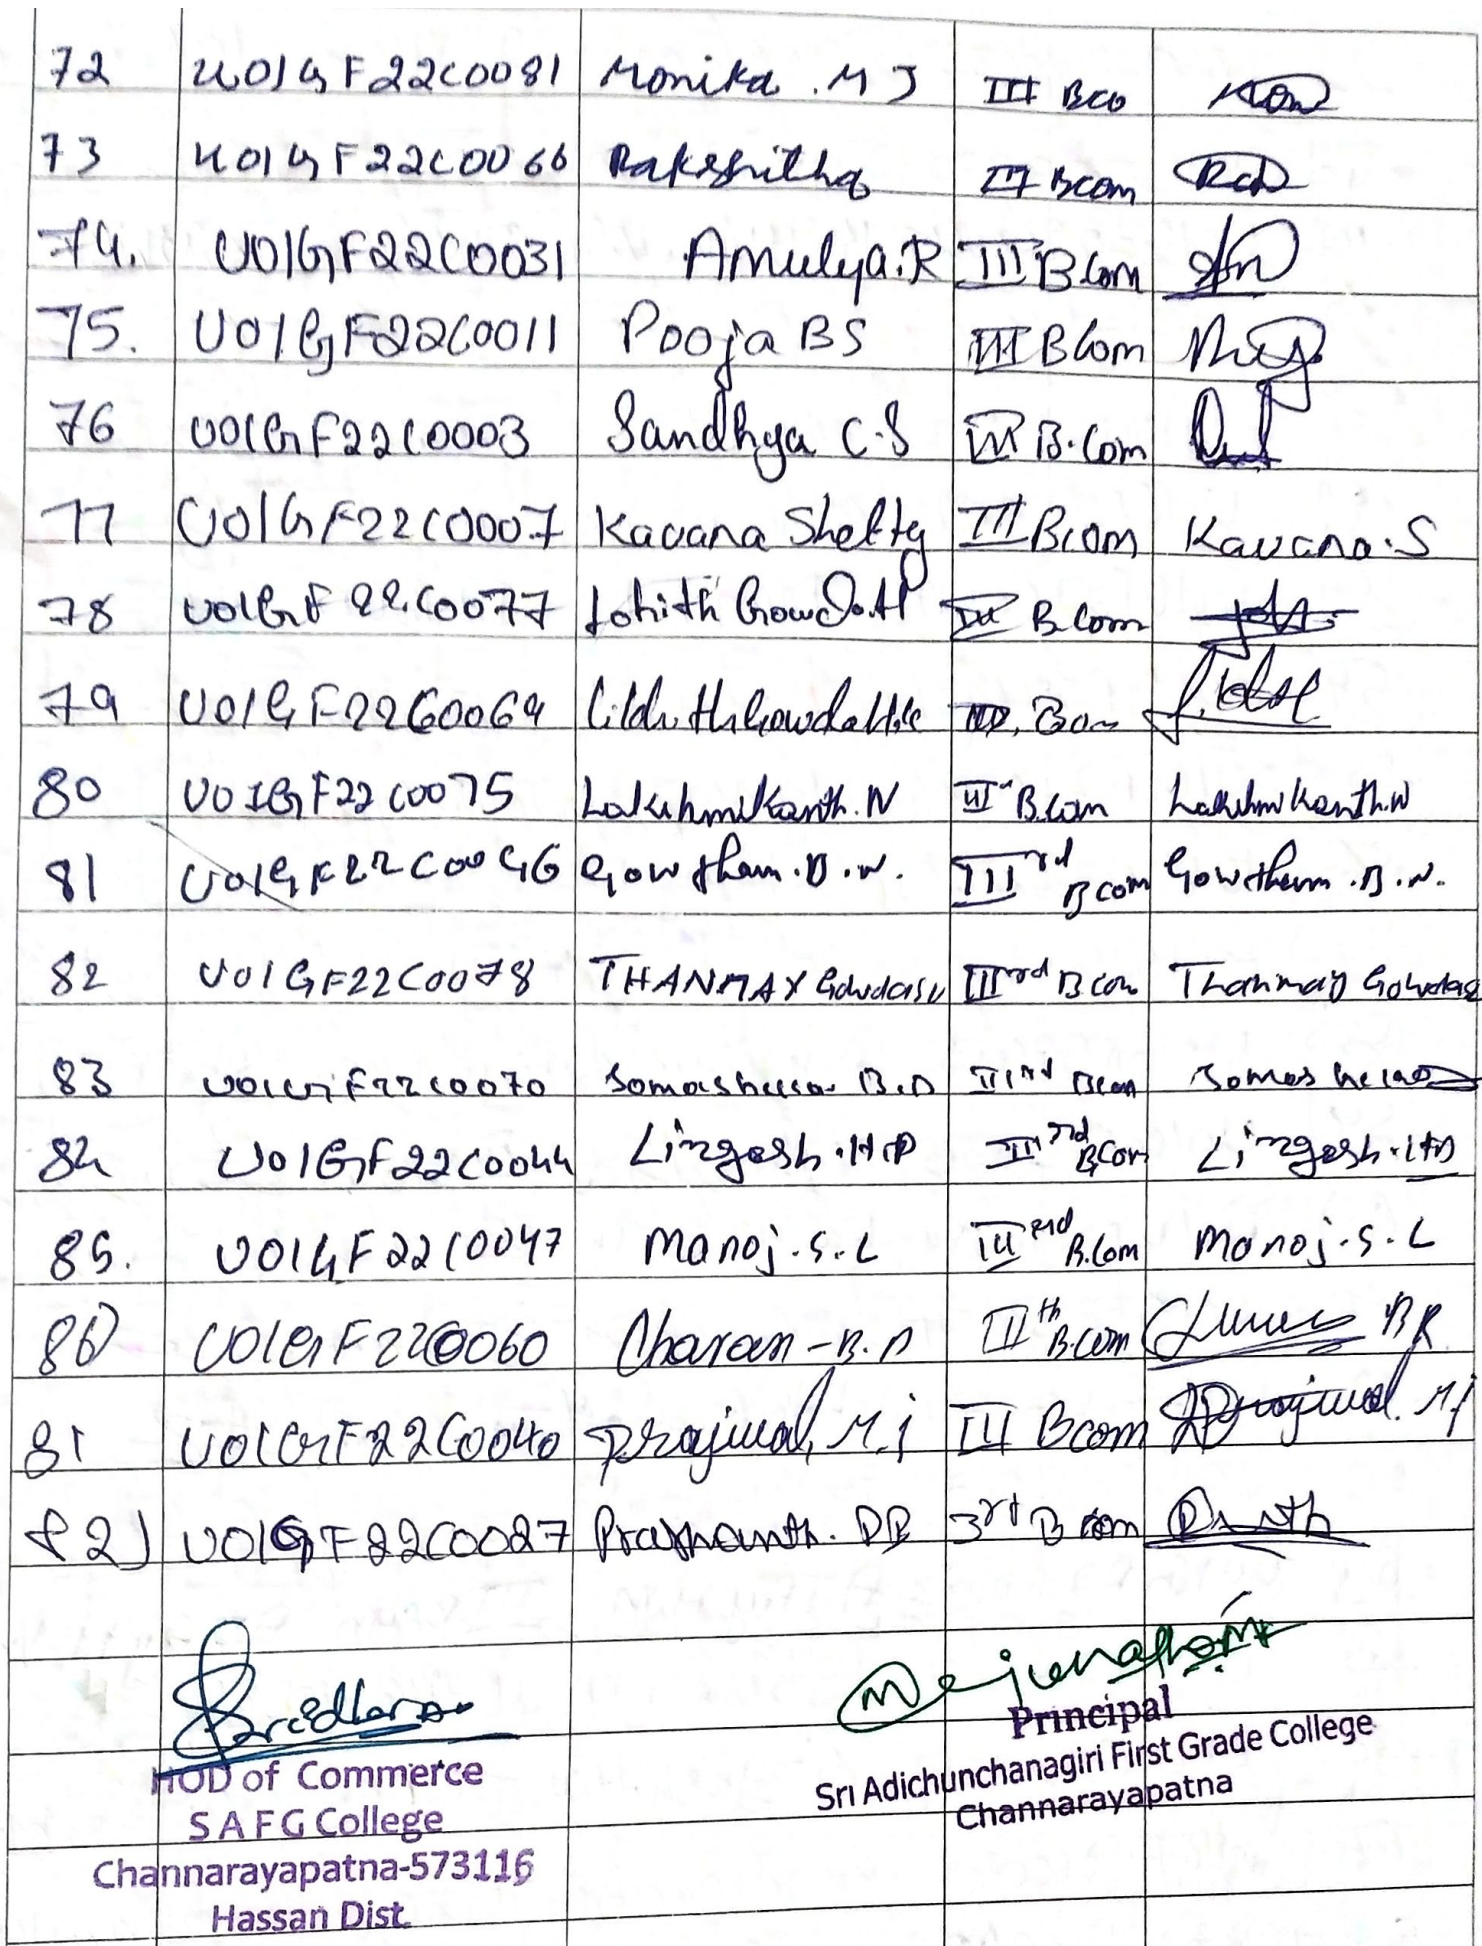 72 U01GF22C0081 Monika .M J III BCO
73 U01GF22C0066 Rakshitha III Bcom
74. U01GF22C0031 Amulya.R III B.Com
75. U01GF22C0011 Pooja BS III BCom
76 U01GF22C0003 Sandhya C.S III B.Com
77 U01GF22C0007 Kavana Shetty III BCOM Kavana.S
78 U01GF22C0077 Lohith Gowda.H III B.Com
79 U01GF22C0069
80 U01GF22C0075 Lakshmikanth.N III B.com Lakshmikanth.N
81 U01GF22C0046 Gowtham.B.N. III rd Bcom Gowtham.B.N.
82 U01GF22C0078 THANMAY Gowda III rd B com Thanmay Gowda
83 U01GF22C0070 Somashekar III rd Bcom
84 U01GF22C0044 Lingesh.H.D III rd B.Com Lingesh.HD
85. U01GF22C0047 Manoj.S.L III rd B.Com Manoj.S.L
86) U01GF22C0060 Charan - B.R III th B.com BR
81 U01GF22C0040 Prajwal, M.j III Bcom Prajwal. M j
82) U01GF22C0027 Prashanth. 3rd B com
Sreedhara
Manjunatha
HOD of Commerce
S A F G College
Channarayapatna-573116
Hassan Dist.
Principal
Sri Adichunchanagiri First Grade College
Channarayapatna